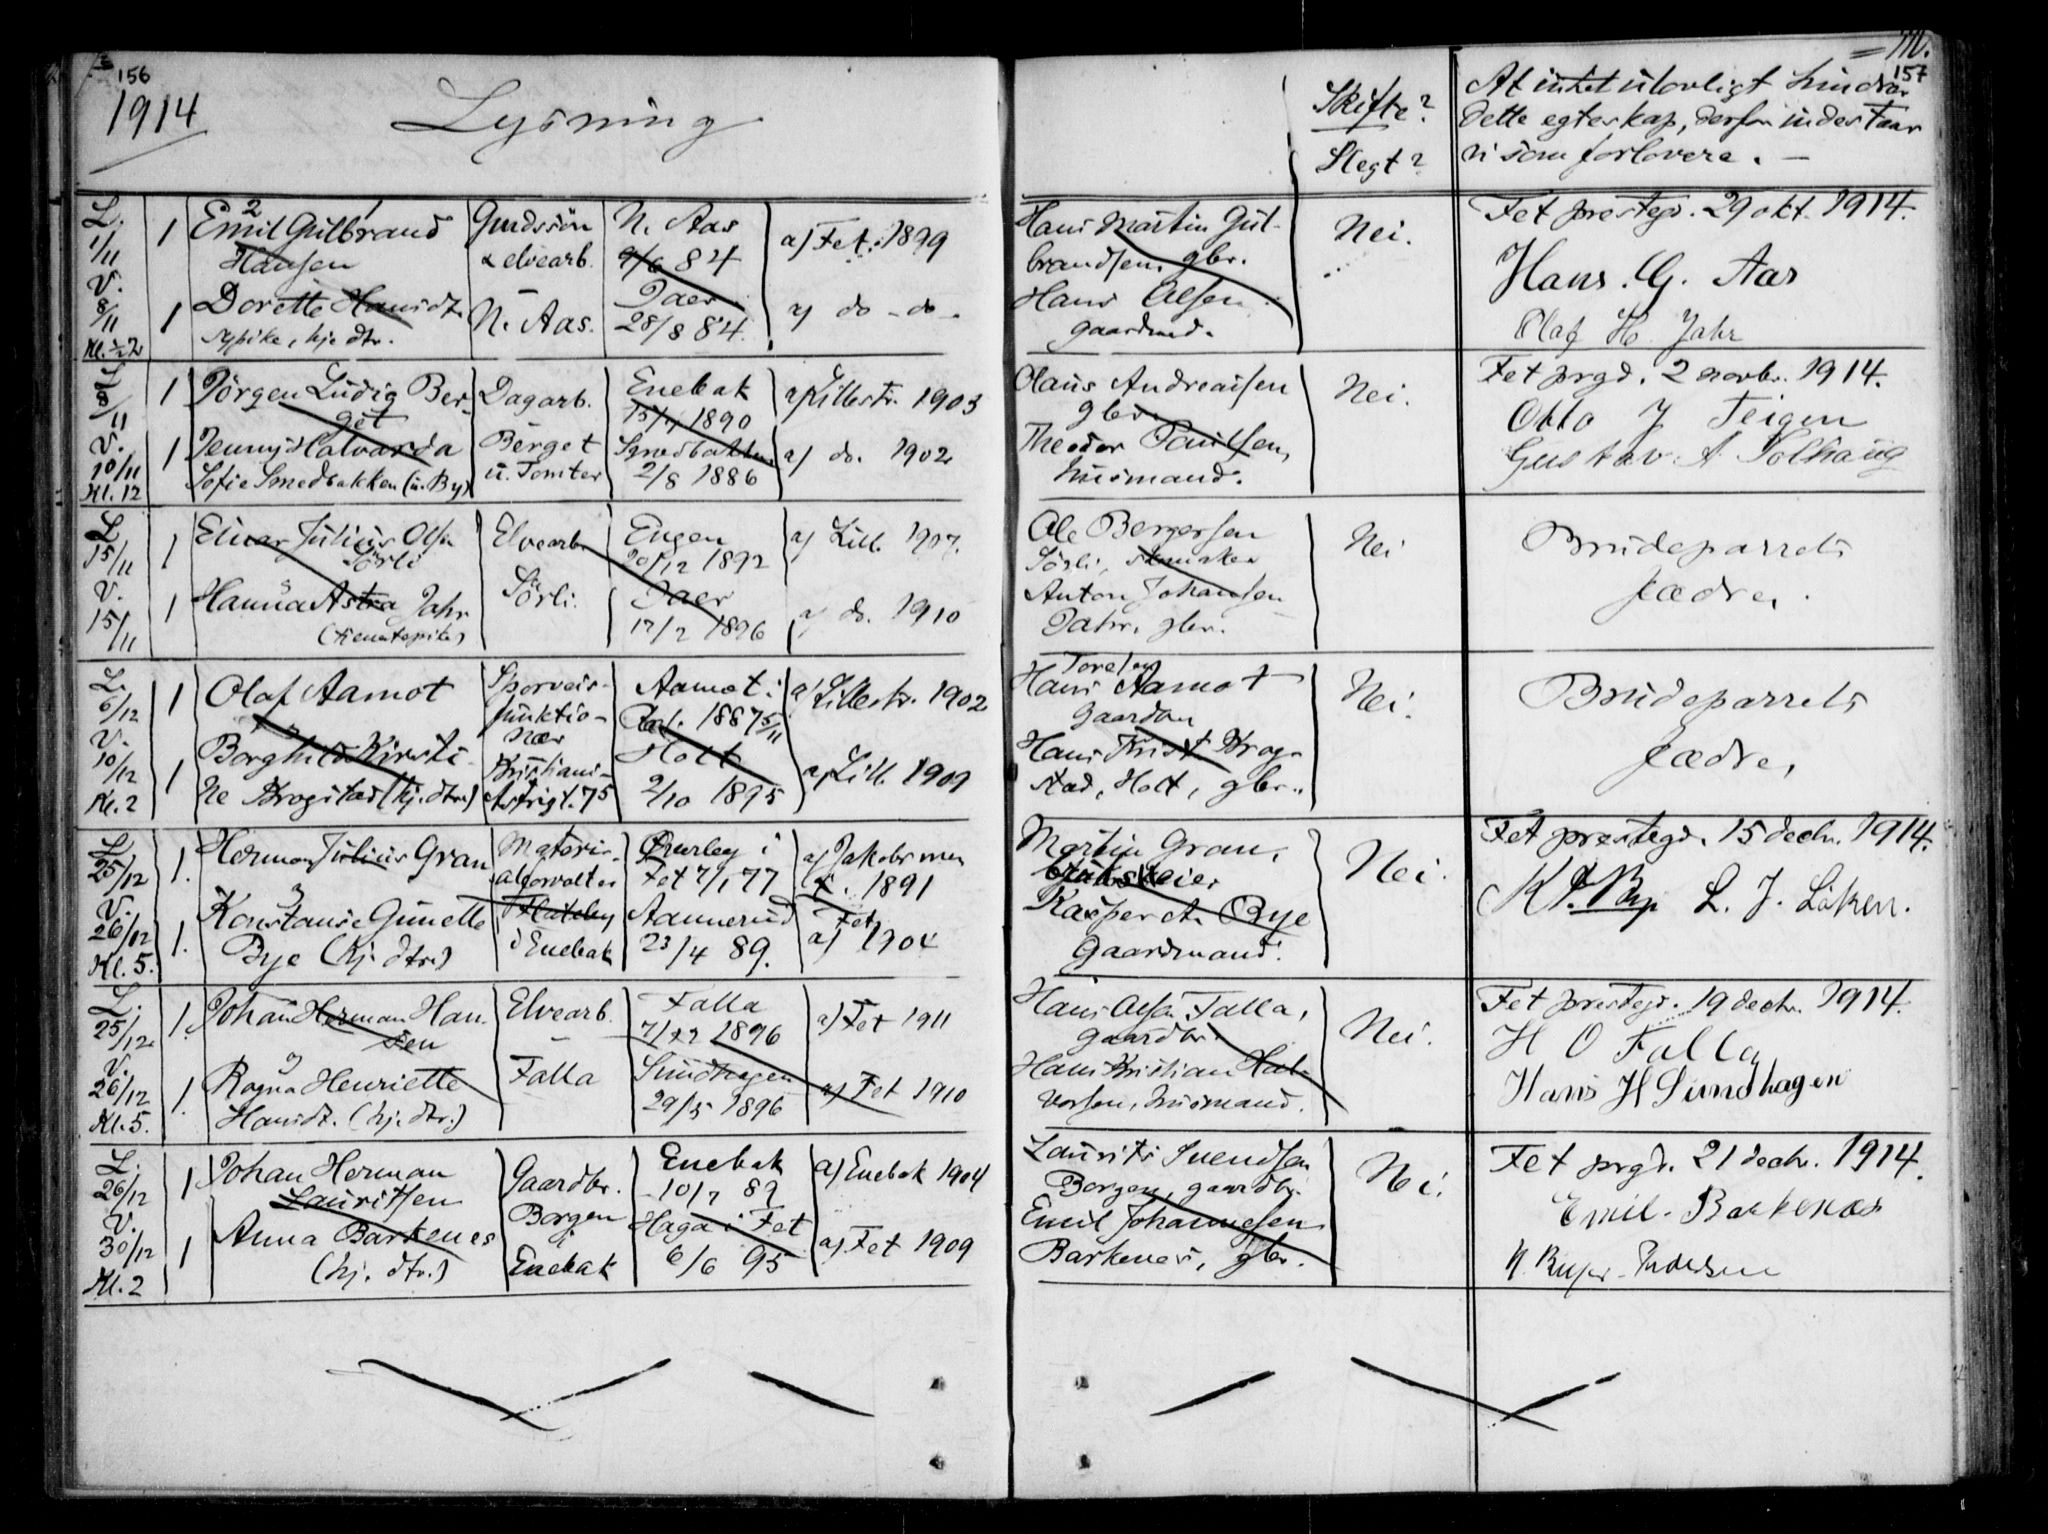 156
1914
Lysning
Skifte?
Slegt?
157
At intet ulovligt hindrer
dette egteskap, derfor indestaar
vi som forlovere. —
L. 1/11 V. 8/11 Kl. ½2
1 Emil Gulbrand
Hansen
Gaardssøn
& elvearb.
N. Aas
9/6 84
a) Fet. 1899
1 Dorette Hansdt.
sypike, hje dtr.
N. Aas.
Jaer
28/8 84.
a) do - do -
Hans Martin Gul-
brandsen, gbr.
Hans Olsen
gaardmd.
Nei.
Fet prestegd. 29 okt. 1914.
Hans. G. Aas
Olaf H. Jahr
L. 8/11 V. 10/11 Kl. 12
1 Jörgen Ludvig Ber-
get
Dagarb.
Berget
u. Tomter
Enebak
15/7 1890
a) Lillestr. 1903
1 Jenny Halvarda
Sofie Smedbakken (u. By)
Smedbakken
2/8 1886
a) do. 1902
Olaus Andreassen
gbr.
Theodor Paulsen,
husmand.
Nei.
Fet prgd. 2 novbr. 1914.
Otto J Teigen
Gustav A Solhaug
L. 15/11 V. 15/11
1 Einar Julius Olsen
Sörli
Elvearb.
Sörli.
Eugen
20/12 1892
a) Lill. 1907.
1 Hanna Astra Jahr
(tjenestepike)
Jaer
17/2 1896
a) do. 1910
Ole Bergersen
Sörli, skomaker
Anton Johansen
Jahr, gbr.
Nei
Brudeparrets
fædre.
L. 6/12 V. 10/12 Kl. 2
1 Olaf Aamot
Sporveis-
funktio-
nær
Kristiani-
Aamot i
1887 5/11
a) Lillestr. 1902
1 Borghild Kirsti-
ne Krogstad (hj. dtr.)
Holt
2/10 1895
a) Lill. 1909
Toresen
Hans Aamot
Gaardbr
Hans Krist. Krog-
stad, Holt, gbr.
Nei.
Brudeparrets
fædre,
L. 25/12 V. 26/12 Kl. 5.
1. Herman Julius Gran
Materi-
alforvalter
Flateby
i Enebak
Ourley i
Fet 7/1 77
1891
1. Konstanse Gunette
Bye (hj. dtr.)
Aamerud
23/4 89.
Fet
a) 1904
Martin Gran,
Kasper A. Bye
Gaardmand.
Nei.
Fet prestegd. 15 decbr. 1914.
K A. Bye L. J. Löken.
L. 25/12 V. 26/12 Kl. 5.
1. Johan Herman Han-
sen
Elvearb.
Falla
Falla
7/12 1896
a) Fet 1911
1. Ragna Henriette
Hansdt. (hj. dtr.)
Sundhagen
29/5 1896
a) Fet 1910
Hans Olsen Falla,
gaardbr.
Hans Kristian Hal-
vorsen, husmand.
Nei.
Fet prestegd. 19 decbr. 1914.
H O Falla
Hans H Sundhagen
L. 26/12 V. 30/12 Kl. 2
1 Johan Herman
Lauritsen
Gaardbr.
Borgen
i
Enebak
Enebak
10/7 89
a) Enebak 1904
1 Anna Barkenes
(hj. dtr.)
Haga i Fet
6/6 95
a) Fet 1909
Laurits Svendsen
Borgen, gaardbr.
Emil Johannesen
Barkenes, gbr.
Nei.
Fet prgd. 21 decbr. 1914.
Emil. Barkenæs